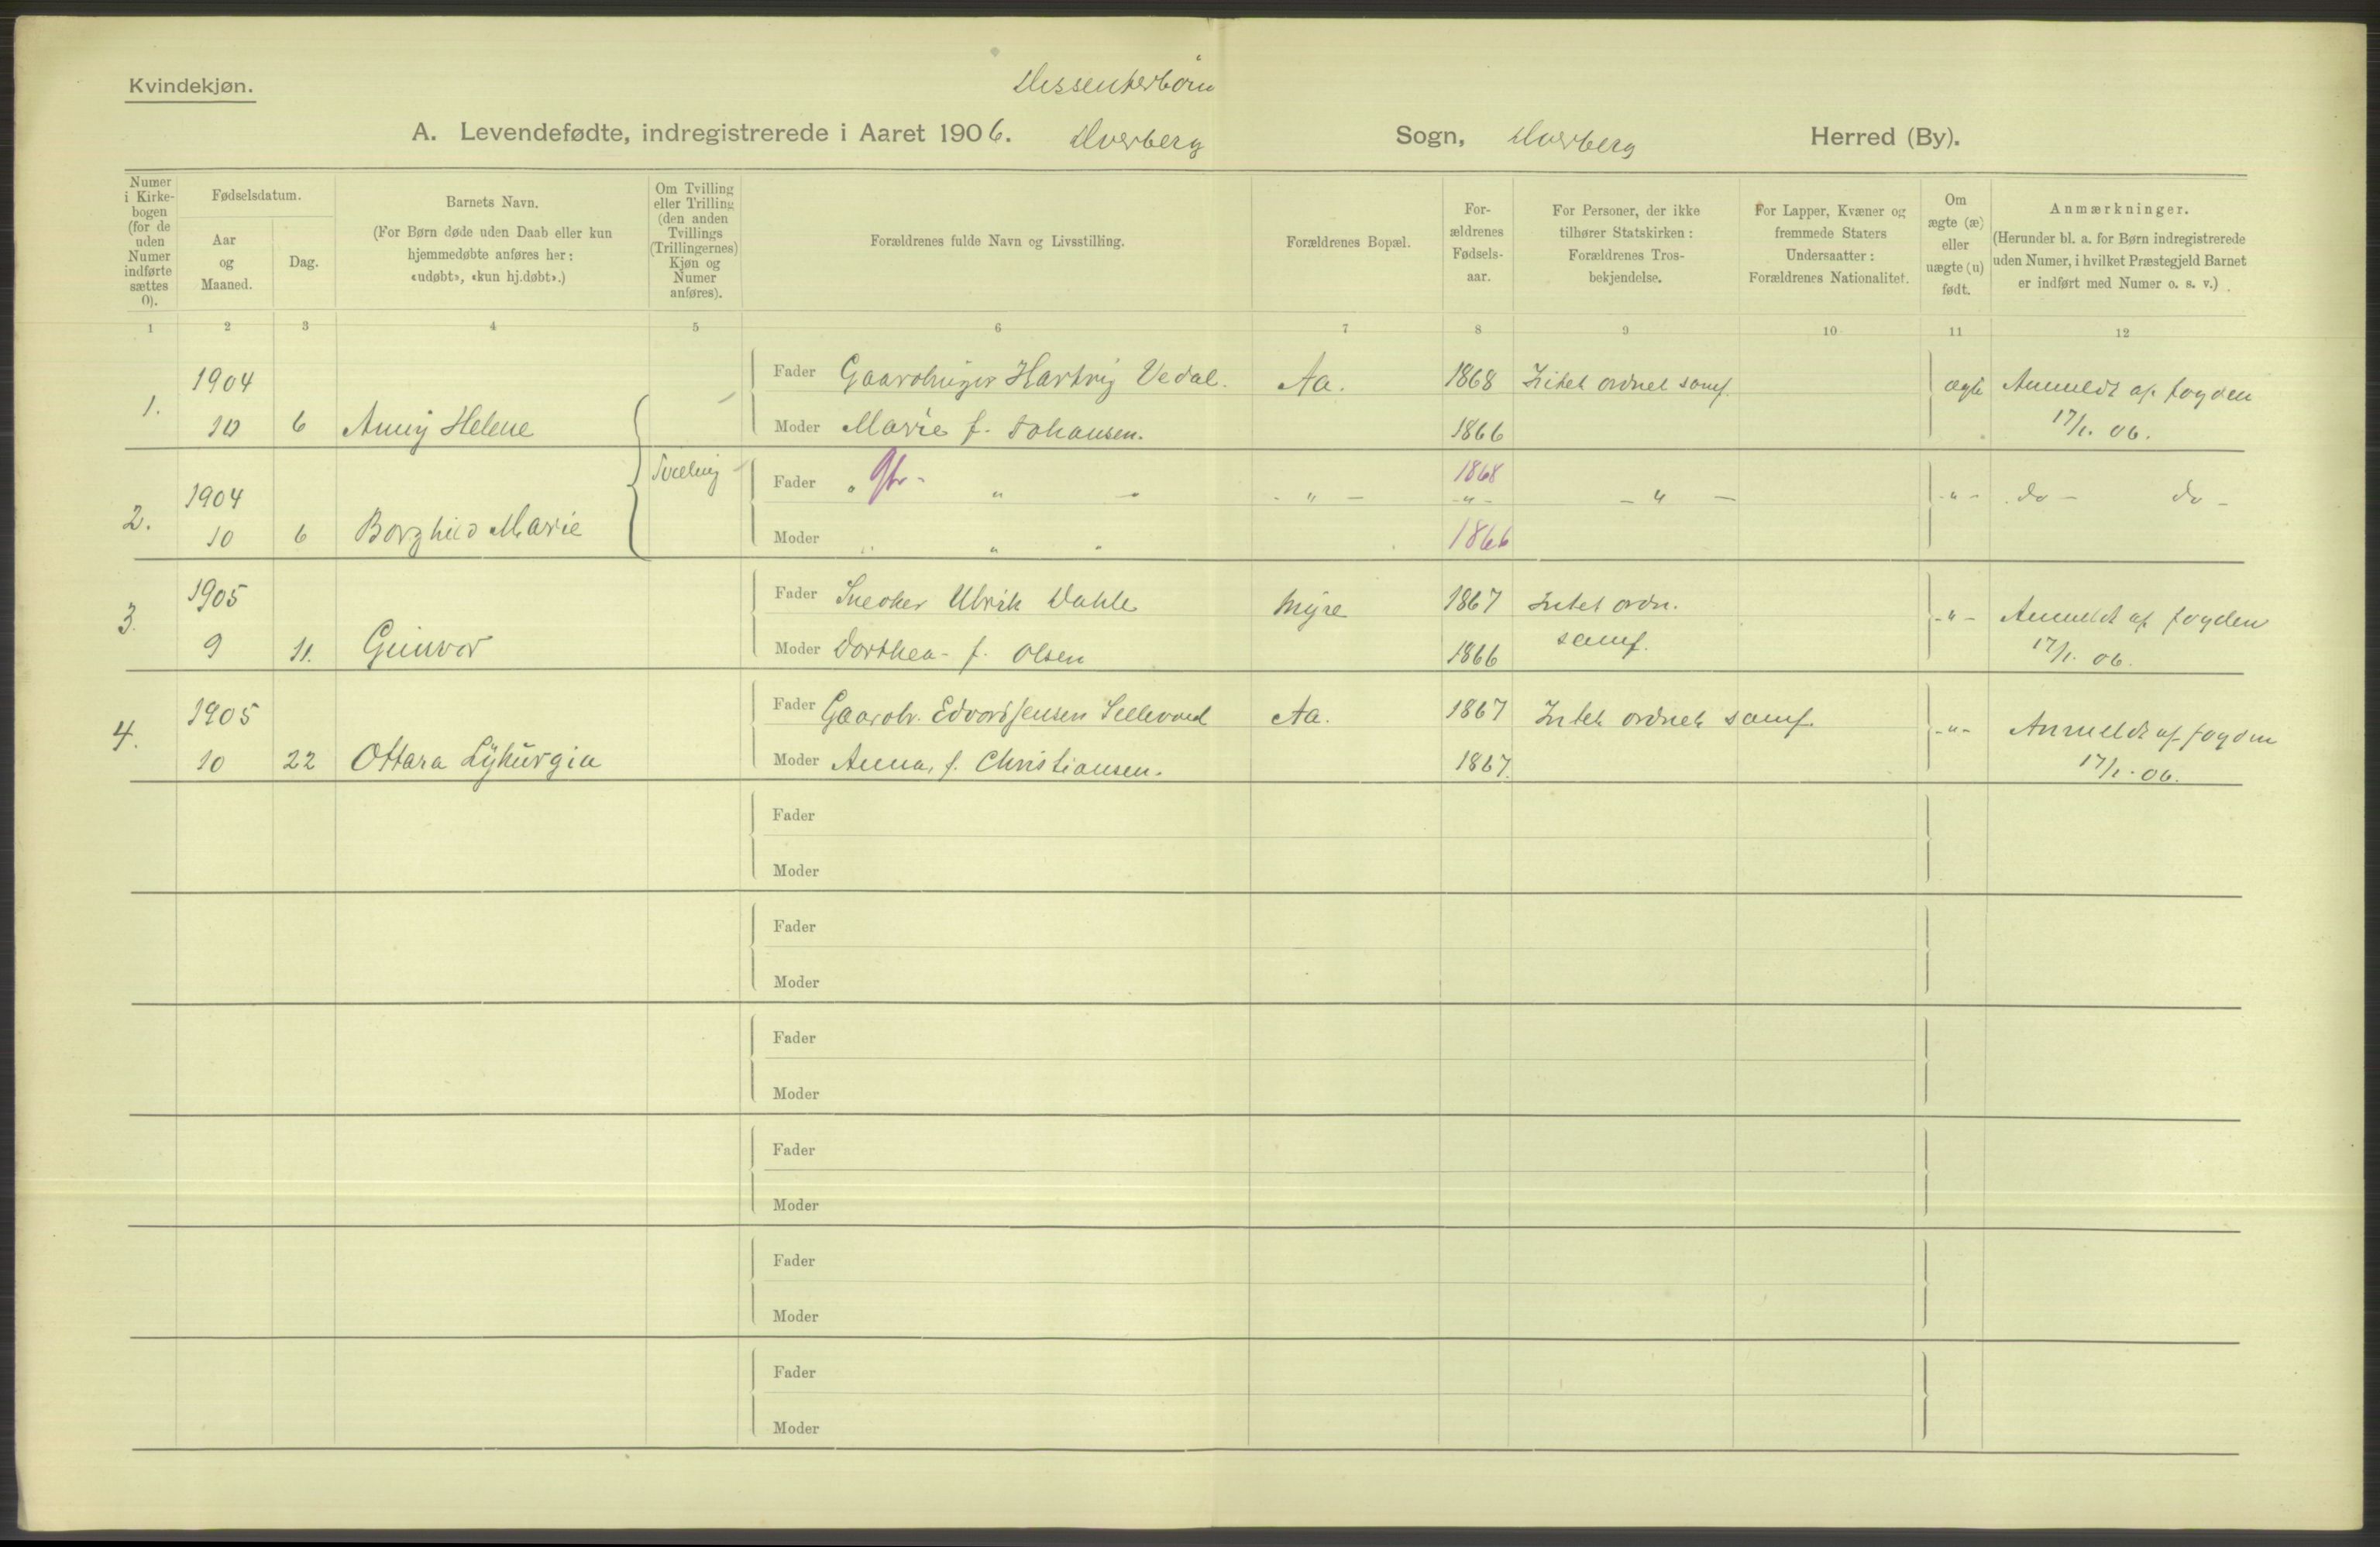 Kvindekjøn.
Dissenterbørn
A. Levendefødte, indregistrerede i Aaret 1906. Dverberg Sogn, Dverberg Herred (By).
Numer i Kirkebogen (for de uden Numer indførte sættes 0).
Fødselsdatum.
Aar og Maaned.
Dag.
Barnets Navn.
(For Børn døde uden Daab eller kun hjemmedøbte anføres her: «udøbt», «kun hj.døbt».)
Om Tvilling eller Trilling (den anden Tvillings (Trillingernes) Kjøn og Numer anføres).
Forældrenes fulde Navn og Livsstilling.
Forældrenes Bopæl.
Forældrenes Fødselsaar.
For Personer, der ikke tilhører Statskirken: Forældrenes Trosbekjendelse.
For Lapper, Kvæner og fremmede Staters Undersaatter: Forældrenes Nationalitet.
Om ægte (æ) eller uægte (u) født.
Anmærkninger.
(Herunder bl. a. for Børn indregistrerede uden Numer, i hvilket Præstegjeld Barnet er indført med Numer o. s. v.)
1 2 3 4 5 6 7 8 9 10 11 12
1904 Fader Gaardbruger Hartvig Vedal. Aa. 1868 Intet ordnet samf. ægte Anmeldt af fogden
1. 10 6 Anny Helene Moder Marie f. Johansen. 1866 17/1. 06.
Tvilling
1904 Fader " Gbr - " - - " - 1868 - " - - " - - " - do - do -
- " -
2. 10 6 Borghild Marie Moder " " " 1866
1905 Fader Snedker Ulrik Dahle Myre 1867 Intet ordn. - " - Anmeldt af fogden
3. 9 11. Gunvor Moder Dorthea - f. Olsen 1866 samf. 17/1. 06.
1905 Fader Gaardbr. Edvard Jensen Sellevold Aa. 1867 Intet ordnet samf. - " - Anmeldt af fogden
4. 10 22 Ottara Lykurgia Moder Anna, f. Christiansen. 1867. 17/1. 06.
Fader
Moder
Fader
Moder
Fader
Moder
Fader
Moder
Fader
Moder
Fader
Moder